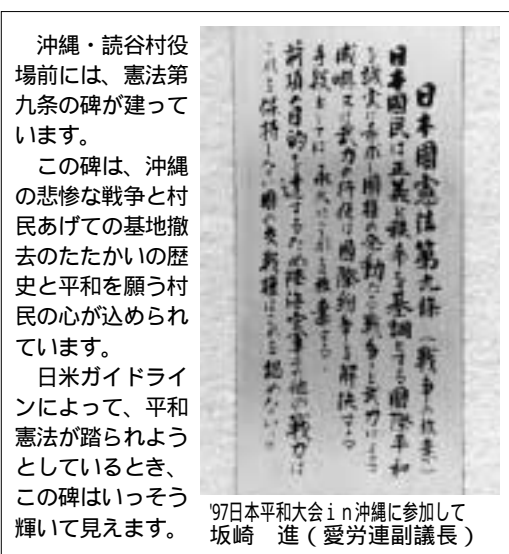 沖縄・読谷村役
場前には、憲法第
九条の碑が建って
います。
この碑は、沖縄
の悲惨な戦争と村
民あげての基地撤
去のたたかいの歴
史と平和を願う村
民の心が込められ
ています。
日米ガイドライ
ンによって、平和
憲法が踏られよう
としているとき、
この碑はいっそう
輝いて見えます。
日本國憲法第九條 （戦争の放棄）
日本國民は正義と秩序を基調とする國際平和
を誠実に希求し國権の発動たる戦争と武力による
威嚇又は武力の行使は國際紛争を解決する
手段としては永久にこれを放棄する。
前項の目的を達するため陸海空軍その他の戦力は
これを保持しない國の交戦権はこれを認めない
'97日本平和大会ｉｎ沖縄に参加して
坂崎　進（愛労連副議長）